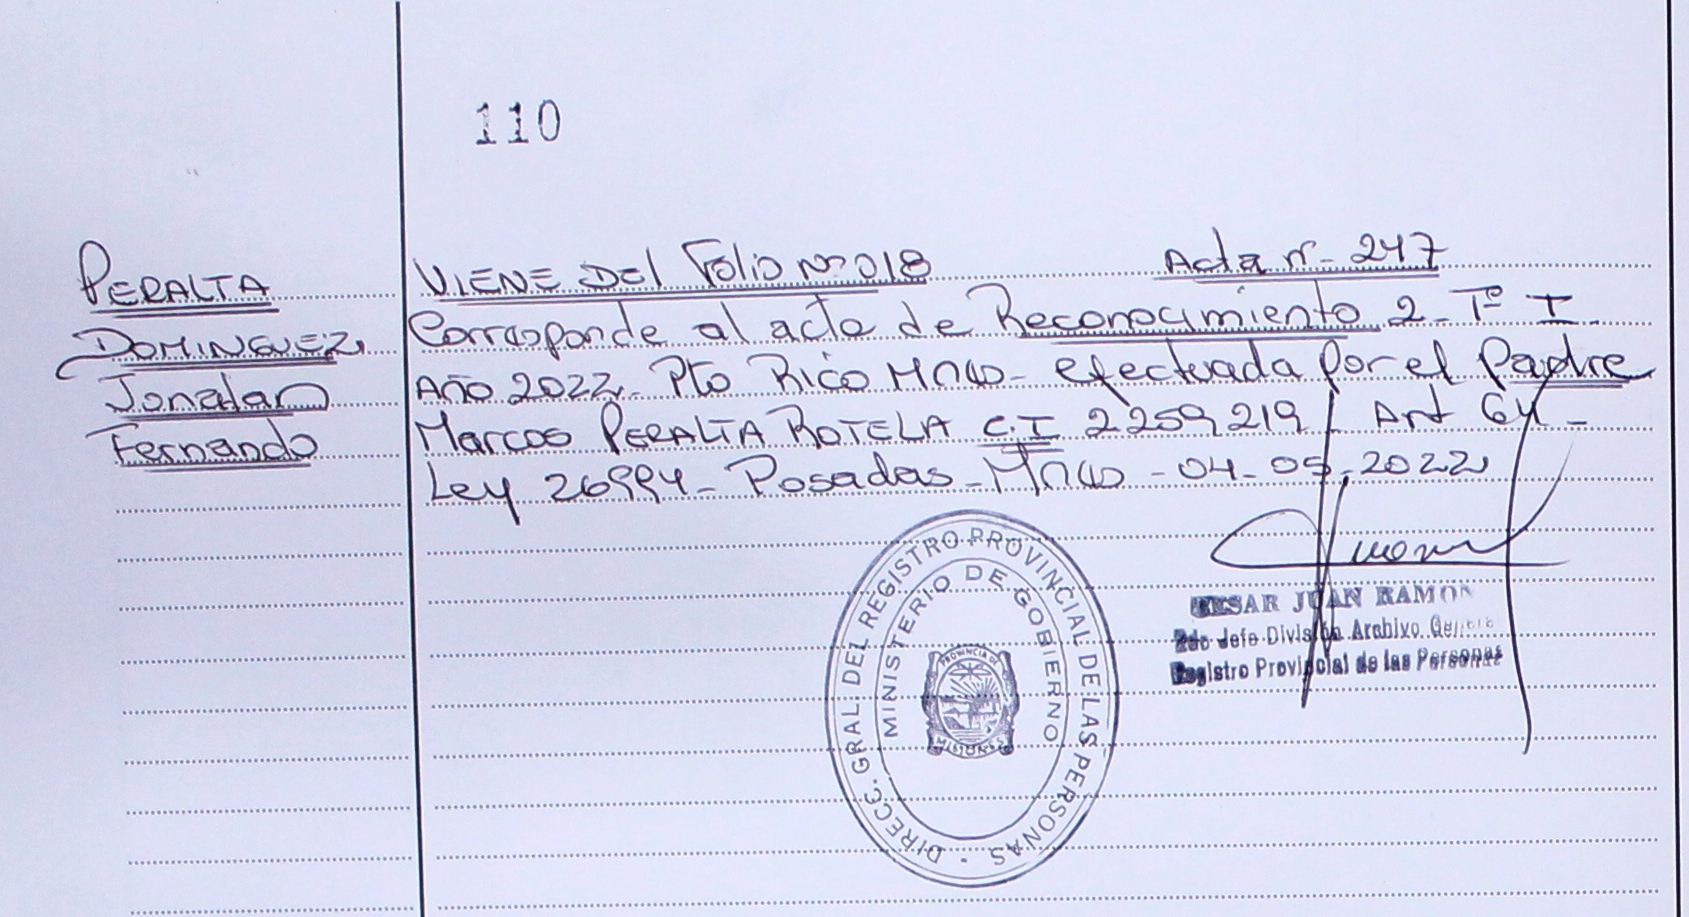 110
PERALTA
DOMINGUEZ
Jonatan
Fernando
VIENE DEl Folio Nº 018 Acta nº 247
Corresponde al acta de Reconocimiento 2 - Tº I
Año 2022 - Pto Rico Mnes - efectuada por el Padre
Marcos PERALTA ROTELA C.I 2259219 Art 64 -
Ley 26994 - Posadas - Mnes - 04-05-2022
DIRECC. GRAL. DEL REGISTRO PROVINCIAL DE LAS PERSONAS
MINISTERIO DE GOBIERNO
PROVINCIA DE
MISIONES
CESAR JUAN RAMON
2do Jefe División Archivo General
Registro Provincial de las Personas